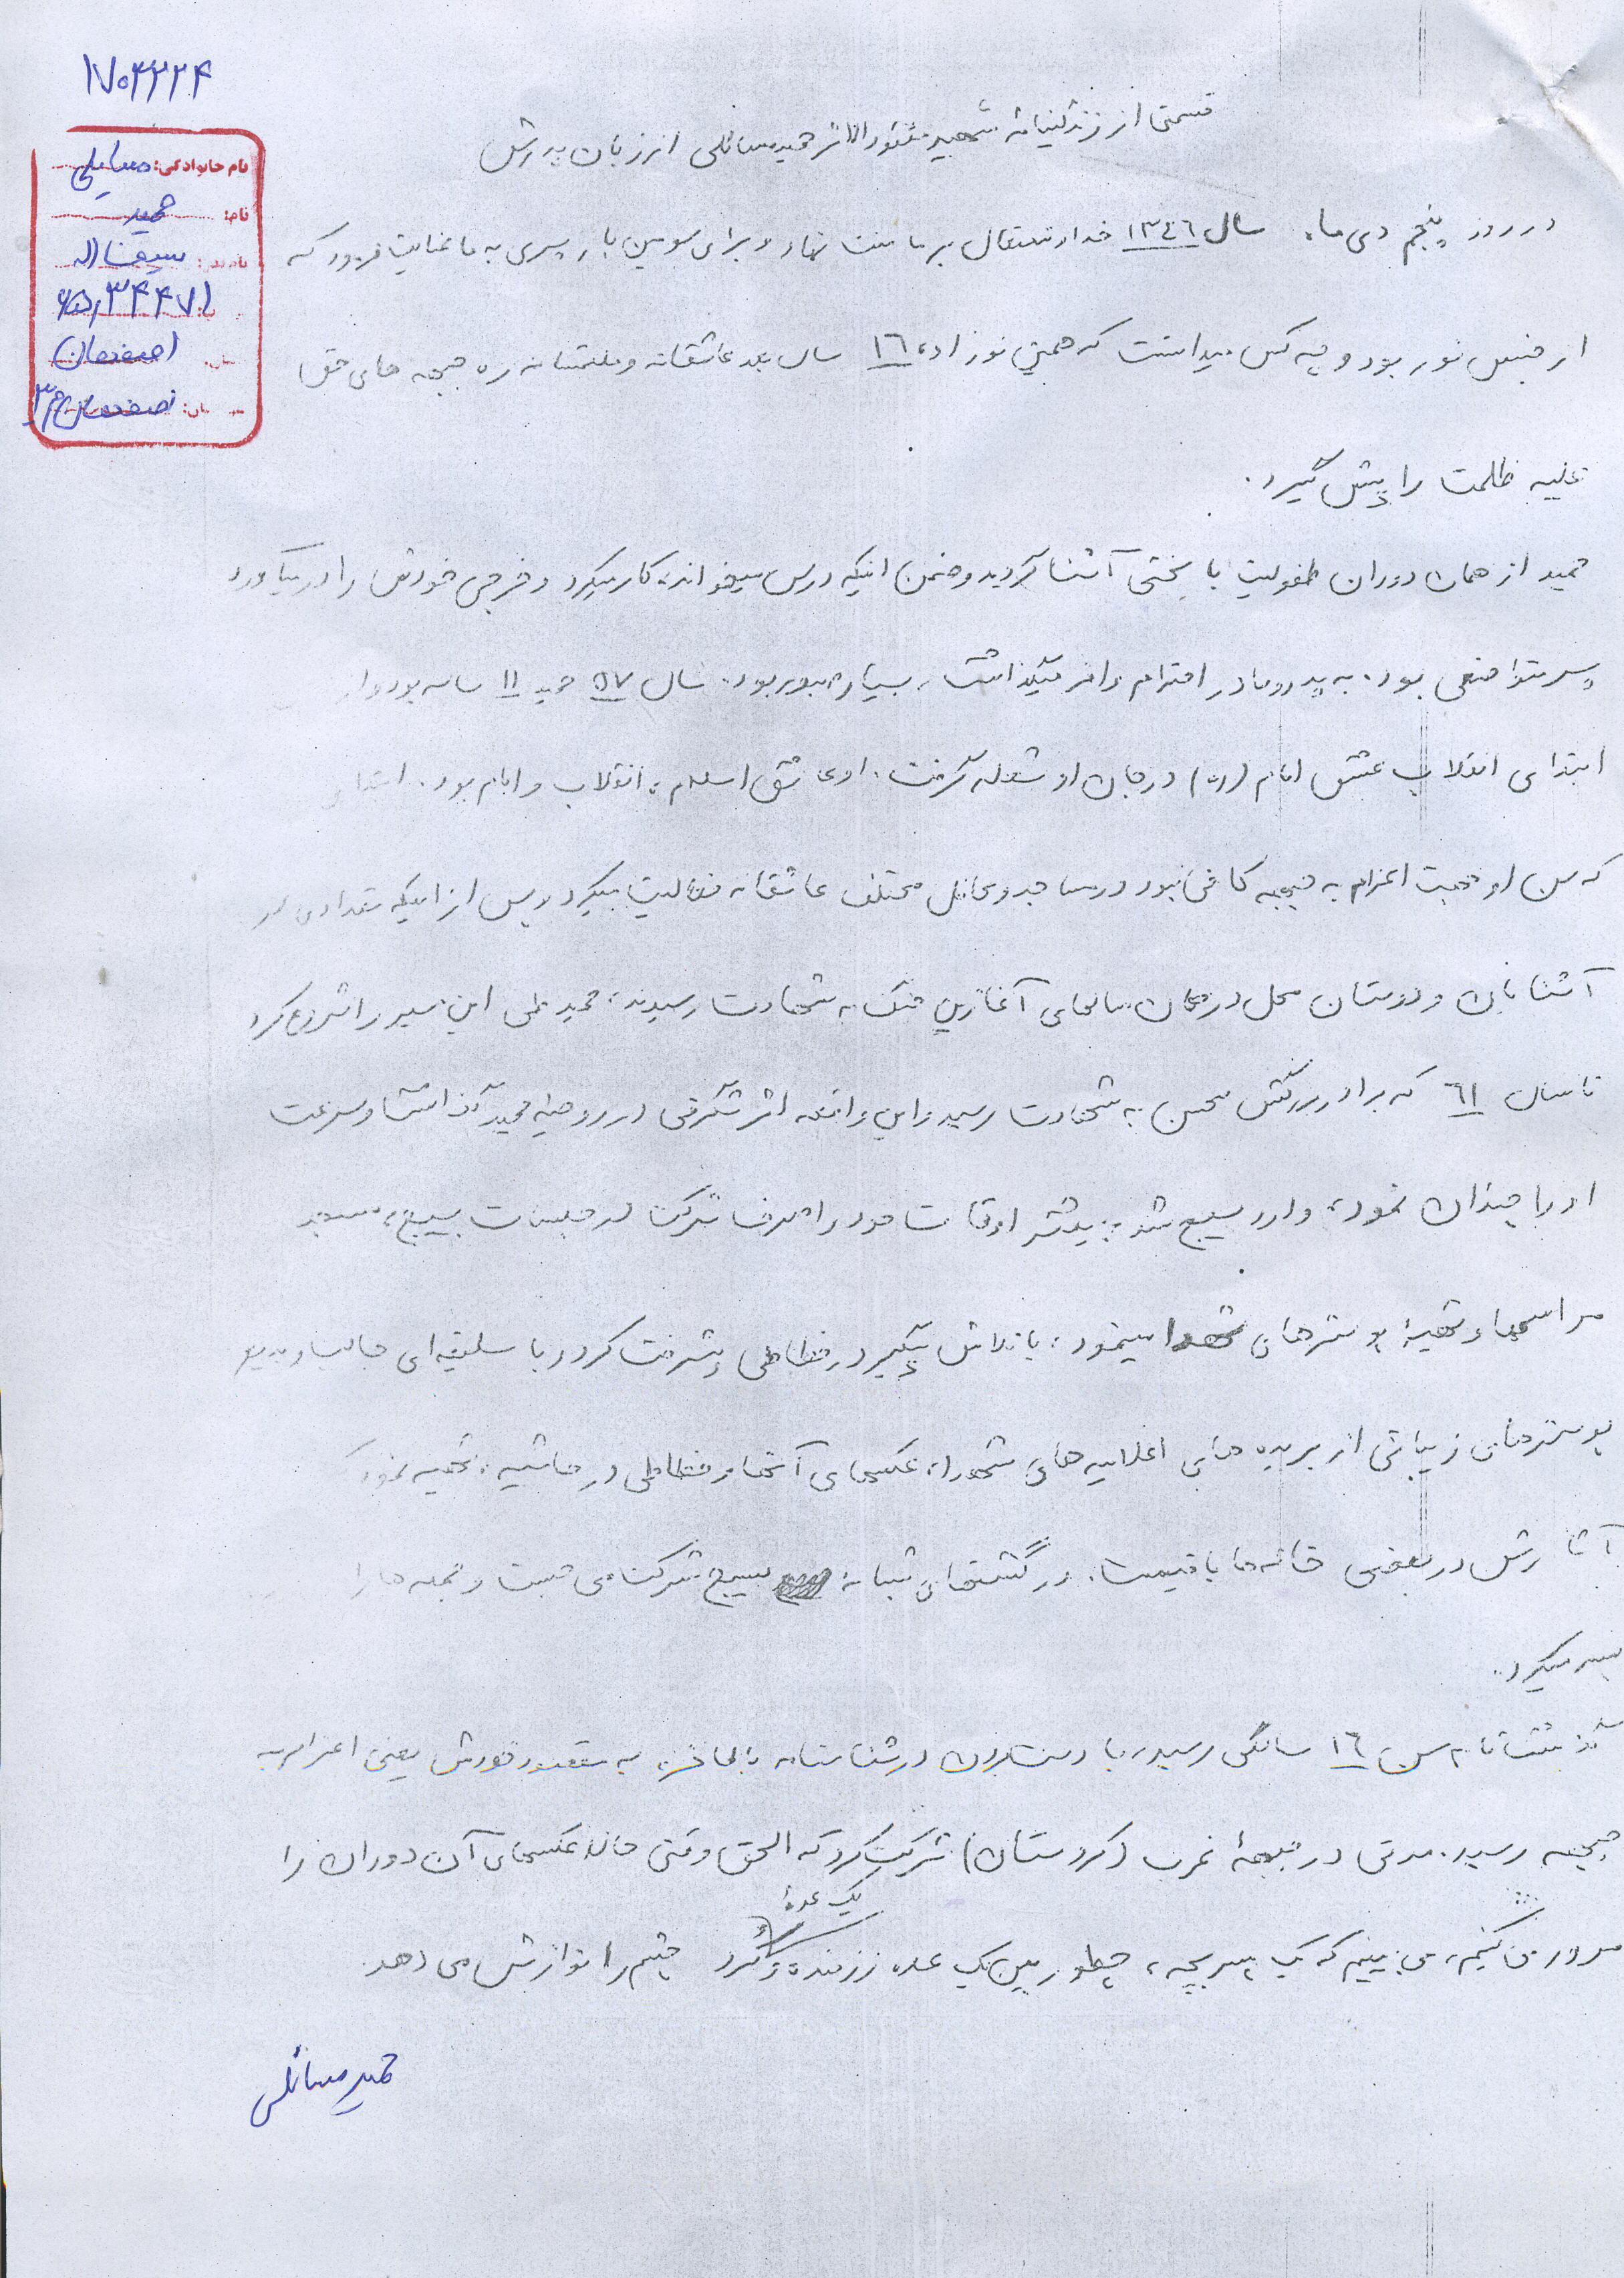 ۱۷۰۳۳۲۴
نام خانوادگی: مسایلی
نام: حمید
سیف اله
۳۴۴۷۱
اصفهان
قسمتی از زندگینامه شهید مفقودالاثر حمید مسائلی از زبان پدرش
در روز پنجم دی ماه سال ۱۳۴۶ خداوند متعال بر ما منت نهاد و برای سومین بار پسری به ما عنایت فرمود که
از جنس نور بود و چه کس میدانست که همین نوزاد، ۱۶ سال بعد عاشقانه و ملتمسانه ره جبهه های حق
علیه ظلمت را پیش گیرد.
حمید از همان دوران طفولیت با سختی آشنا گردید و ضمن اینکه درس میخواند، کار میکرد و خرجی خودش را در میآورد
پسر متواضعی بود. به پدر و مادر احترام وافر میگذاشت، بسیار صبور بود. سال ۵۷ حمید ۱۱ ساله بود و از
ابتدای انقلاب عشق امام (ره) در جان او شعله گرفت. او عاشق اسلام، انقلاب و امام بود. ابتدای
که سن او جهت اعزام به جبهه کافی نبود در مساجد و محافل مختلف عاشقانه فعالیت میکرد و پس از اینکه تعدادی از
آشنایان و دوستان محل در همان سالهای آغازین جنگ به شهادت رسیدند، حمید طی این مسیر را شروع کرد
تا سال ۶۱ که برادر بزرگش محسن به شهادت رسید و این واقعه اثر شگرفی در روحیه حمید گذاشت و سرعت
او را چندان نمود، وارد بسیج شد، بیشتر اوقات خود را صرف شرکت در جلسات بسیج، مسجد
مراسمها و تهیه پوسترهای شهدا مینمود، با تلاش پیگیر در خطاطی پیشرفت کرد و با سلیقه‌ای جالب و بدیع
پوسترهای زیبائی از بریده های اعلامیه های شهدا، عکسهای آنها و خطاطی در حاشیه، تهیه نمود که
آثارش در بعضی خانه ها باقیست. در گشتهای شبانه بسیج شرکت می جست و جمعه ها را
میکرد.
گذشت تا به سن ۱۶ سالگی رسید، با دست بردن در شناسنامه بالاخره به مقصود خودش یعنی اعزام به
جبهه رسید. مدتی در جبهۀ غرب (کردستان) شرکت کرد که الحق وقتی حالا عکسهای آن دوران را
مرور می کنیم، می بینیم که یک پسر بچه، چطور بین یک عده رزمنده کرد چشم را نوازش می دهد
یک عده
حمید مسائلی